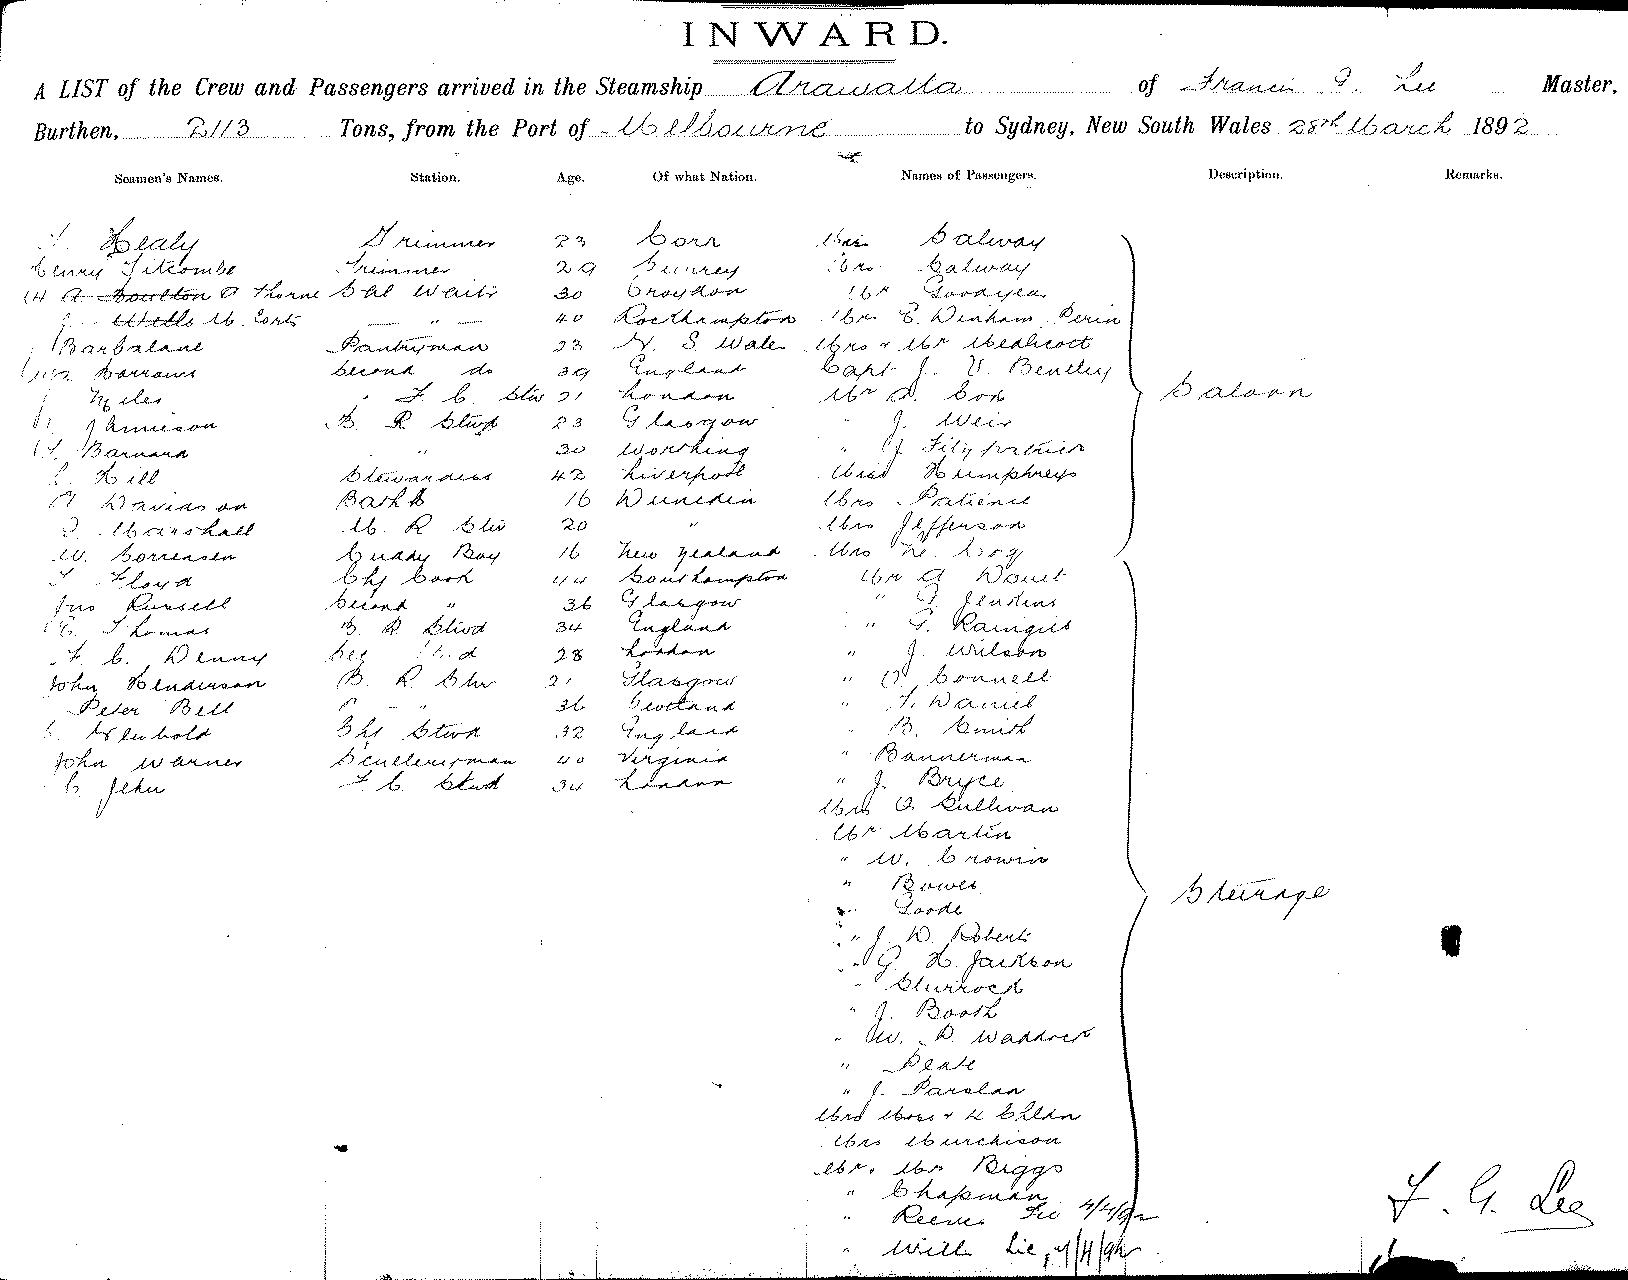 INWARD.
A LIST of the Crew and Passengers arrived in the Steamship Arawatta of Francis G. Lee Master,
Burthen, 2113 Tons, from the Port of Melbourne to Sydney, New South Wales 28th March 1892
Seamen's Names. Station. Age. Of what Nation. Names of Passengers. Description. Remarks.
Healy Trimmer 23 Galway
Henry Titcombe Trimmer 29 Surrey Galway
A Boulton Thorne Sal Waiter 30 Croydon Mr Goodyear
Wells M. 40 Rockhampton E. Denham
Pantryman 23 N. S. Wales Mrs & Mr
Second do 39 England Capt J. V. Bentley
F. C. Stw 21 London Mr Cox
Jamieson B. R Stwd 23 Glasgow " J. Weir Saloon
Barnard " 30 Worthing " J. Fitzpatrick
Hill Stewardess 42 Liverpool Miss Humphreys
Davidson 16 Dunedin Mrs Patience
Marshall M. R Stw 20 " Mrs Jefferson
W. Sorrensen Cuddy Boy 16 New Zealand Mrs
Floyd Chf Cook 44 Southampton Mr
Jno Russell Second " 36 Glasgow " Jenkins
Thomas B. R Stwd 34 England "
F. C. Denny 28 London " J. Wilson
John Henderson B. R. Stw 21 Glasgow " Connell
Peter Bell " 36 Scotland " Daniel
Newbold Chf Stwd 32 England " B. Smith
John Warner Sculleryman 40 Virginia " Bannerman
C. Jehu F. C. Stwd 34 London " J. Bryce
Mrs O Sullivan
Mr Martin
" W. Cronin
" Bowes Steerage
Goode
" J. D. Roberts
" G. H. Jackson
" Sturrock
" J. Booth
" W. Waddock
"
" J.
Mrs Moss & 4 Chldn
Mrs Murchison
Mr & Mrs Biggs
" Chapman F. G. Lee
" Reeves 4/4/92
" Wills